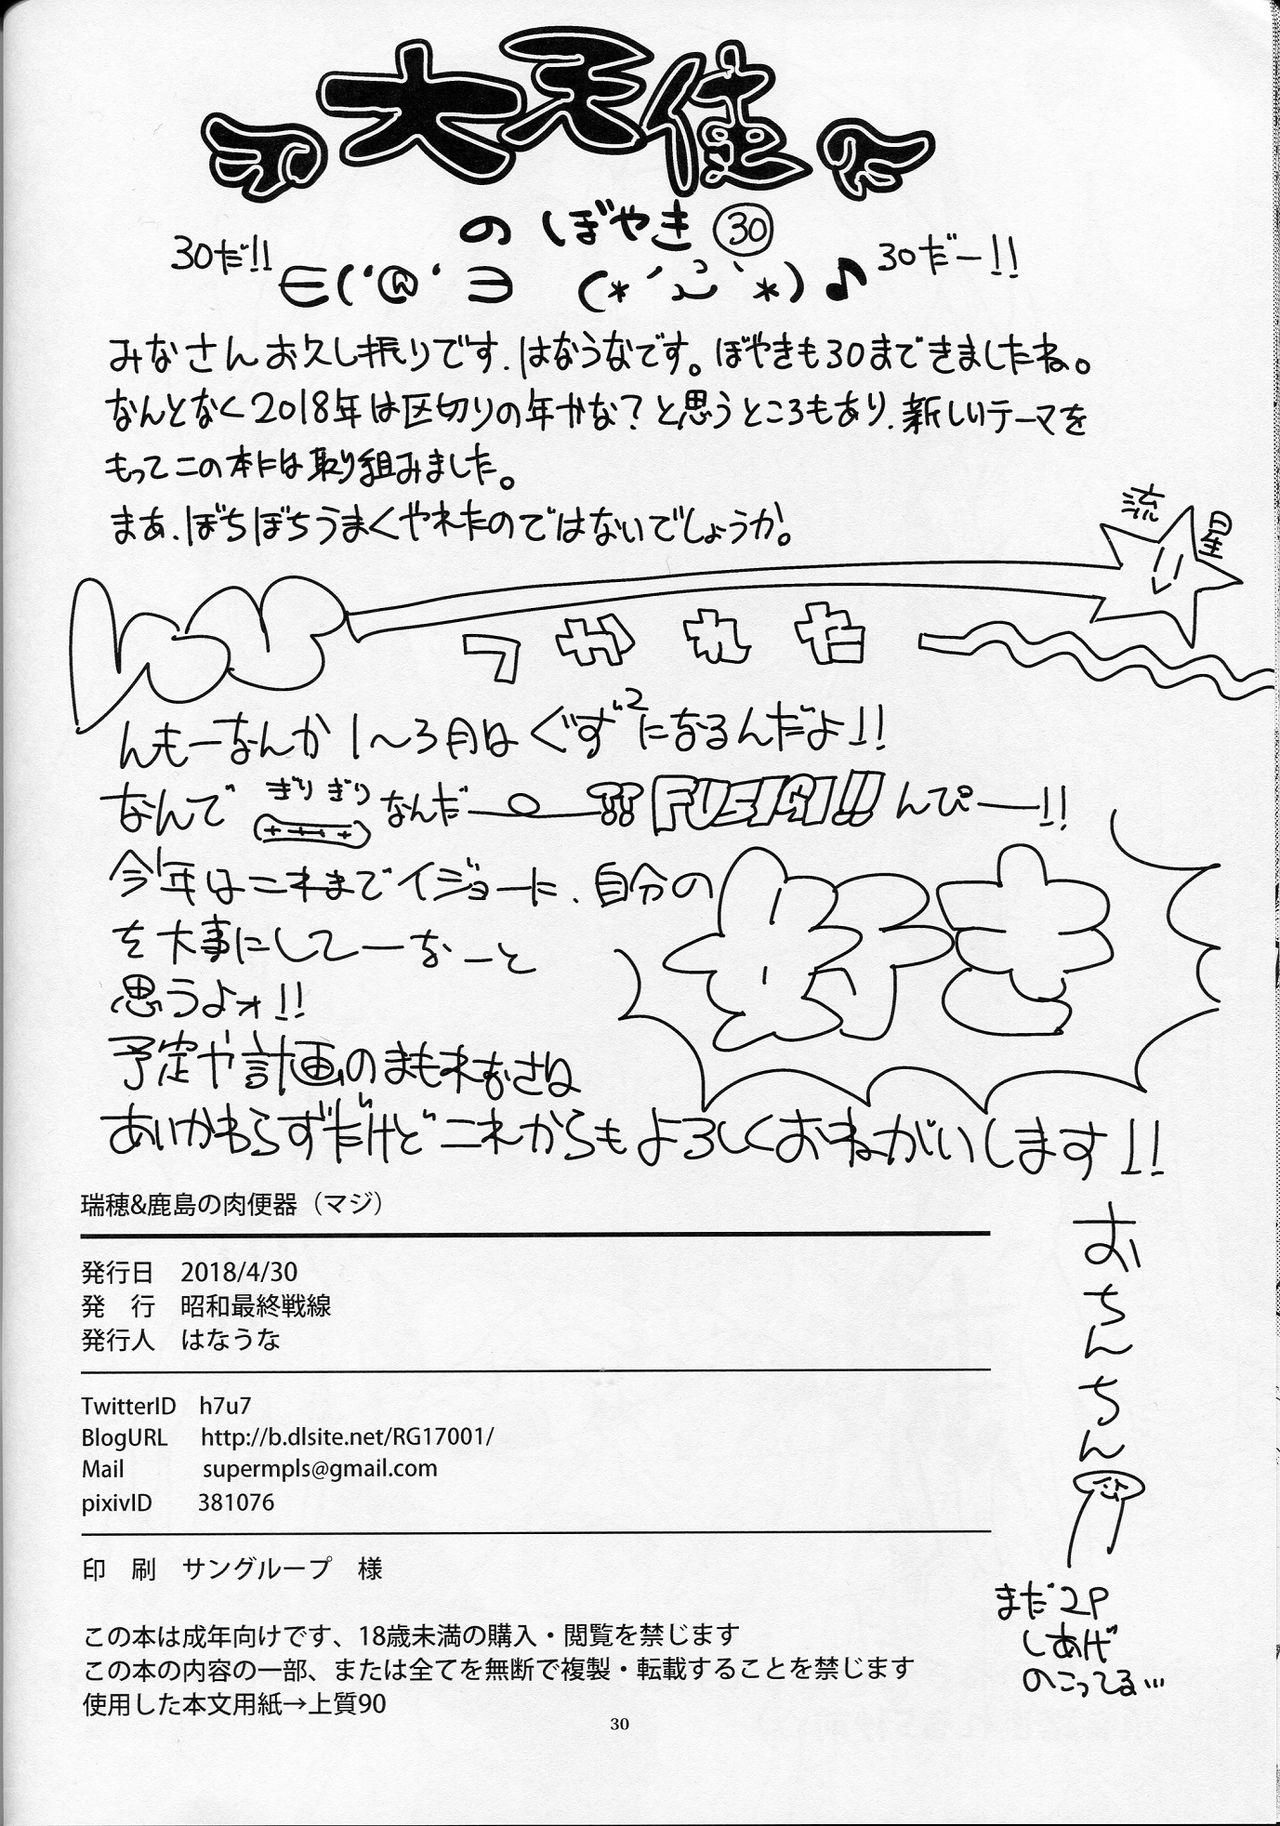 大天使
のぼやき㉚
30だ!! ∈('@'∋ (*´ `*)♪ 30だー!!
みなさんお久し振りです、はなうなです。ぼやきも30まできましたね。
なんとなく2018年は区切りの年かな？と思うところもあり、新しいテーマを
もってこの本には取り組みました。
まあ、ぼちぼちうまくやれたのではないでしょうか。
流星
つかれた
んもーなんか1〜3月はぐず²になるんだよ!!
なんでぎりぎりなんだー!! んぴー!!
今年はこれまでイジョーに、自分の
好き
を大事にしてーなーと
思うよォ!!
予定や計画のまもれなさは
あいかわらずだけどこれからもよろしくおねがいします!!
おちんちん
まだ2P
しあげ
のこってる…
瑞穂&鹿島の肉便器（マジ）
発行日　2018/4/30
発　行　昭和最終戦線
発行人　はなうな
TwitterID　h7u7
BlogURL　http://b.dlsite.net/RG17001/
Mail　supermpls@gmail.com
pixivID　381076
印　刷　サングループ　様
この本は成年向けです、18歳未満の購入・閲覧を禁じます
この本の内容の一部、または全てを無断で複製・転載することを禁じます
使用した本文用紙→上質90
30